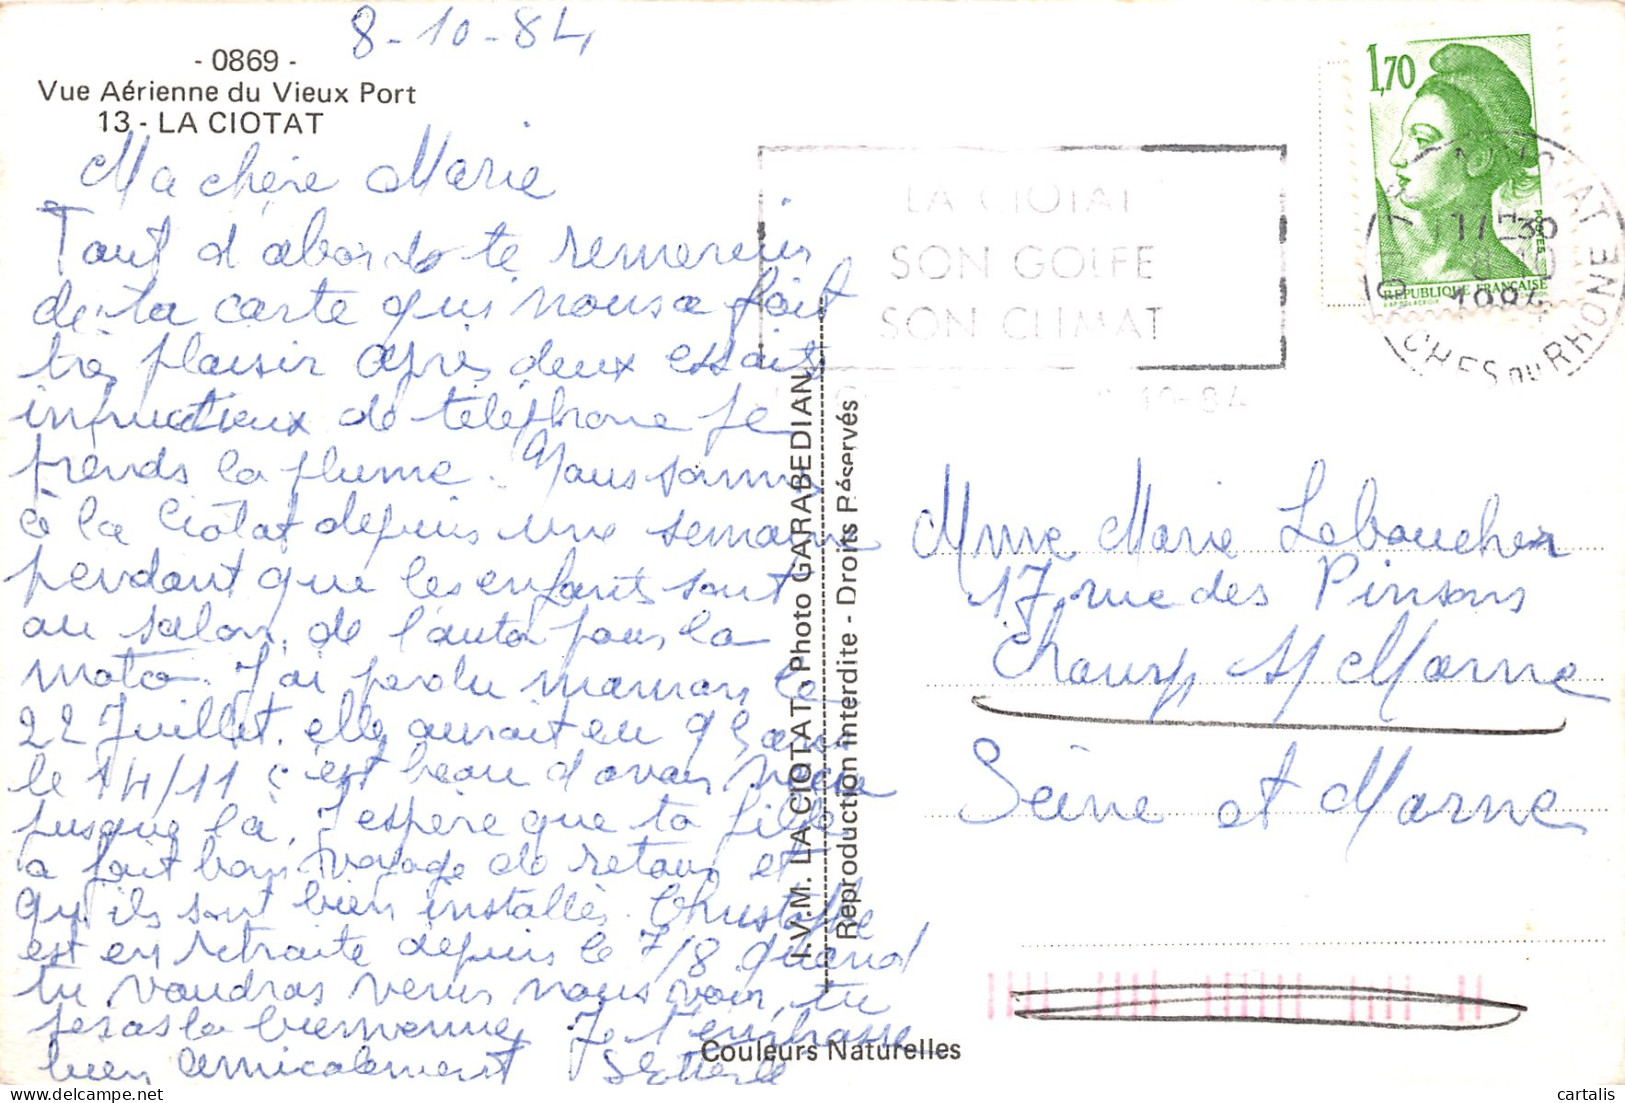 8-10-84
- 0869 -
Vue Aérienne du Vieux Port
13 - LA CIOTAT
Ma chère Marie
Tout d'abord te remercier
de ta carte qui nous a fait
très plaisir après deux essais
infructueux de téléphone je
prends la plume. Nous sommes
à la Ciotat depuis une semaine
pendant que les enfants sont
au salon de l'auto pour la
moto. J'ai perdu maman le
22 Juillet. elle aurait eu 93 ans
le 14/11 c'est beau d'avoir vécu
jusque là, J'espère que ta fille
a fait bon voyage de retour et
qu'ils sont bien installés. Christophe
est en retraite depuis le 7/8 quand
tu voudras venir nous voir, tu
seras la bienvenue, Je t'embrasse
bien amicalement
I.V.M. LA CIOTAT, Photo GARABEDIAN
Reproduction Interdite - Droits Réservés
Couleurs Naturelles
1,70
POSTES
RÉPUBLIQUE FRANÇAISE
LA CIOTAT
SON GOLFE
SON CLIMAT
10-84
LA CIOTAT
17H30
8-10
1984
B CHES DU RHONE
Mme Marie Leboucher
17 rue des Pinsons
Champs s/ Marne
Seine et Marne
cartalis